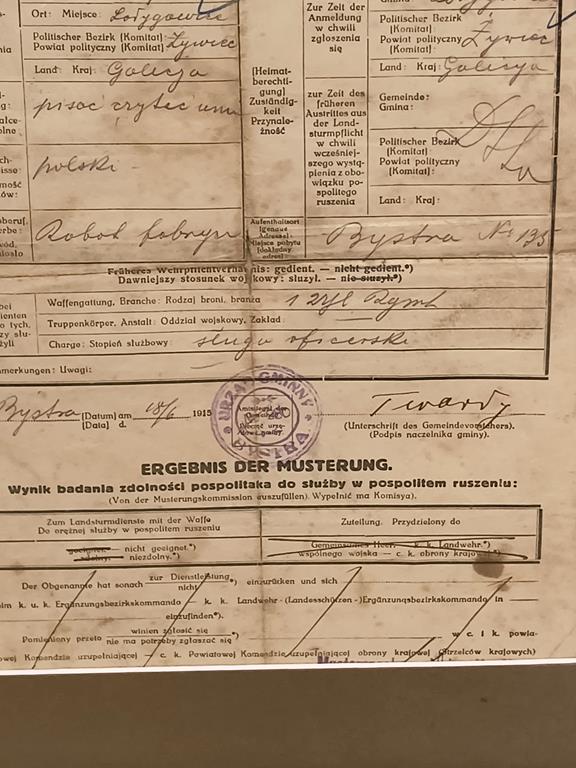 Ort: Miejsce: Łodygowice
Politischer Bezirk
[Komitat]
Powiat polityczny
(Komitat)
Żywiec
Land: Kraj: Galicja
pisać czytać umi
polski
Robot. fabryn
[Heimat-
berechti-
gung]
Zuständig-
keit
Przynale-
żność
Aufenthaltsort
[genaue
Adresse]:
Miejsce pobytu
[dokładny
adres]:
Zur Zeit der
Anmeldung
w chwili
zgłoszenia
się
Gmina:
Politischer Bezirk
[Komitat]
Powiat polityczny
(Komitat):
Żywiec
Land: Kraj: Galicja
zur Zeit des
früheren
Austrittes aus
der Land-
sturmpflicht
w chwili
wcześniej-
szego wystą-
pienia z obo-
wiązku po-
spolitego
ruszenia
Gemeinde:
Gmina:
Politischer Bezirk
[Komitat]:
Powiat polityczny
(Komitat):
Land: Kraj:
Bystra No 135
Früheres Wehrpflichtverhältnis: gedient. — nicht gedient.*)
Dawniejszy stosunek wojskowy: służył. — nie służył.*)
Waffengattung, Branche: Rodzaj broni, branża
Truppenkörper, Anstalt: Oddział wojskowy, Zakład:
Charge: Stopień służbowy: sługa oficerski
nmerkungen: Uwagi:
Bystra [Datum] am 18/6 1915
[Data] d.
URZĄD GMINNY
BYSTRA
Twardy
(Unterschrift des Gemeindevorstehers).
(Podpis naczelnika gminy).
ERGEBNIS DER MUSTERUNG.
Wynik badania zdolności pospolitaka do służby w pospolitem ruszeniu:
(Von der Musterungskommission auszufüllen). Wypełnić ma Komisya).
Zum Landsturmdienste mit der Waffe
Do orężnej służby w pospolitem ruszeniu
geeignet. — nicht geeignet.*)
zdolny. — niezdolny.*)
Zuteilung. Przydzielony do
Gemeinsames Heer. — k. k. Landwehr.*)
wspólnego wojska — c. k. obrony krajowej.*)
Der Obgenannte hat sonach zur Dienstleistung *) einzurücken und sich
nicht
eim k. u. k. Ergänzungsbezirkskommando — k. k. Landwehr-(Landesschützen-)Ergänzungsbezirkskommando in
einzufinden*).
Pomieniony przeto winien zgłosić się *) w c. i k. powia-
nie ma potrzeby zgłaszać się
owej Komendzie uzupełniającej — c. k. Powiatowej Komendzie uzupełniającej obrony krajowej (Strzelców krajowych)